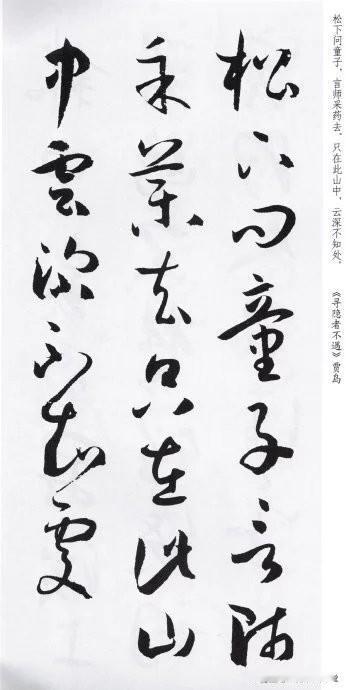 松下问童子，言师采药去，只在此山中，云深不知处。 《寻隐者不遇》贾岛
松下问童子言师
采药去只在此山
中雲深不知處